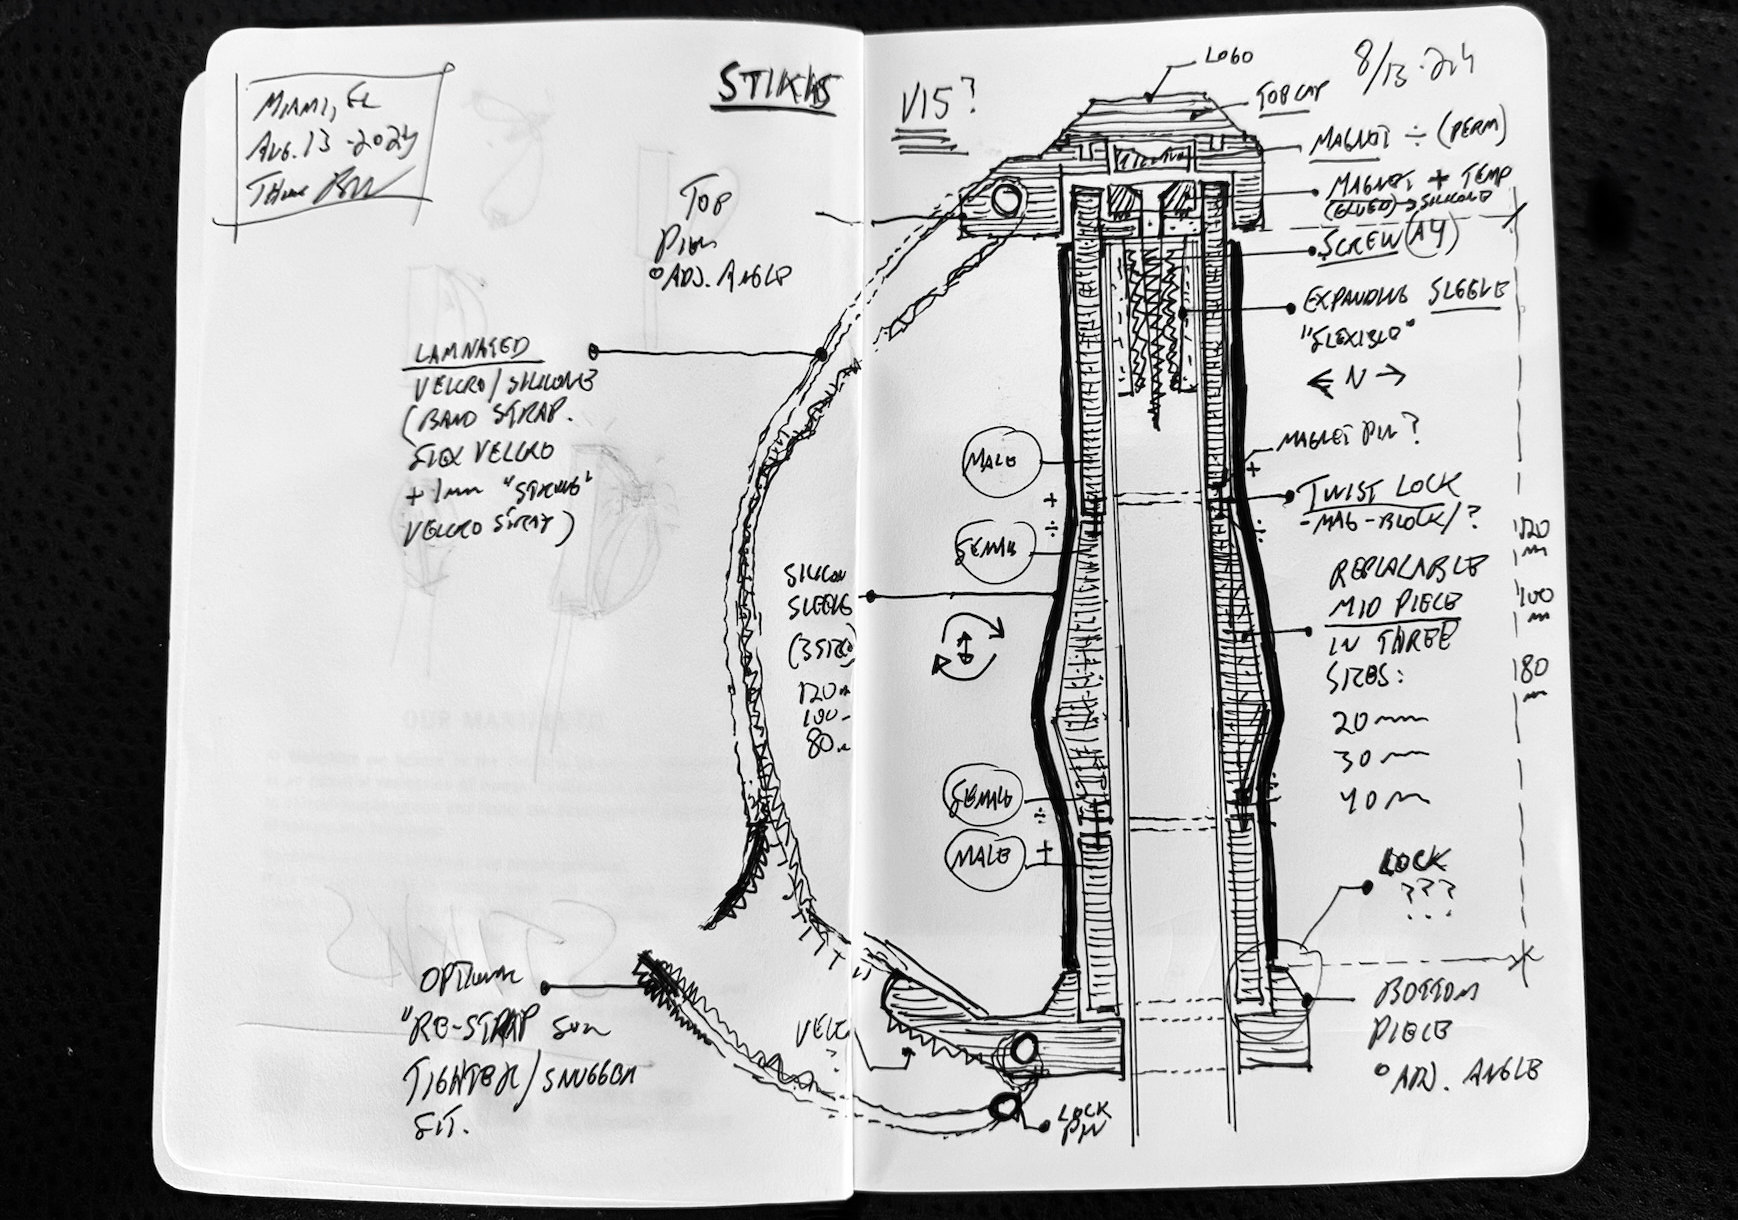 MIAMI, FL
AUG. 13 - 2024
STIKKS
TOP
PIECE
° ADJ. ANGLE
LAMNATED
VELCRO/SILICONE
(BAND STRAP.
FLEX VELCRO
+ 1mm "STRONG"
VELCRO STRAP)
SILICON
SLEEVE
(3 SIZES)
120m
100-
80m
OPTIONAL
"RE-STRAP FOR
TIGHTER/SNUGGER
FIT.
VELC
?
V15?
8/13-24
LOGO
TOP CAP
MAGNET ÷ (PERM)
MAGNET + TEMP
(GLUED) → SILICONE
SCREW (A4)
EXPANDING SLEEVE
"FLEXIBLE"
← N →
MAGNET PIN?
+
TWIST LOCK
-MAG-BLOCK/?
÷
MALE
+
÷
FEMALE
REPLACABLE
MID PIECE
IN THREE
SIZES:
20mm
30mm
40m
120
m
100
m
180
m
FEMALE
÷
MALE +
LOCK
???
BOTTOM
PIECE
° ADJ. ANGLE
LOCK
PIN
OUR MANIFESTO